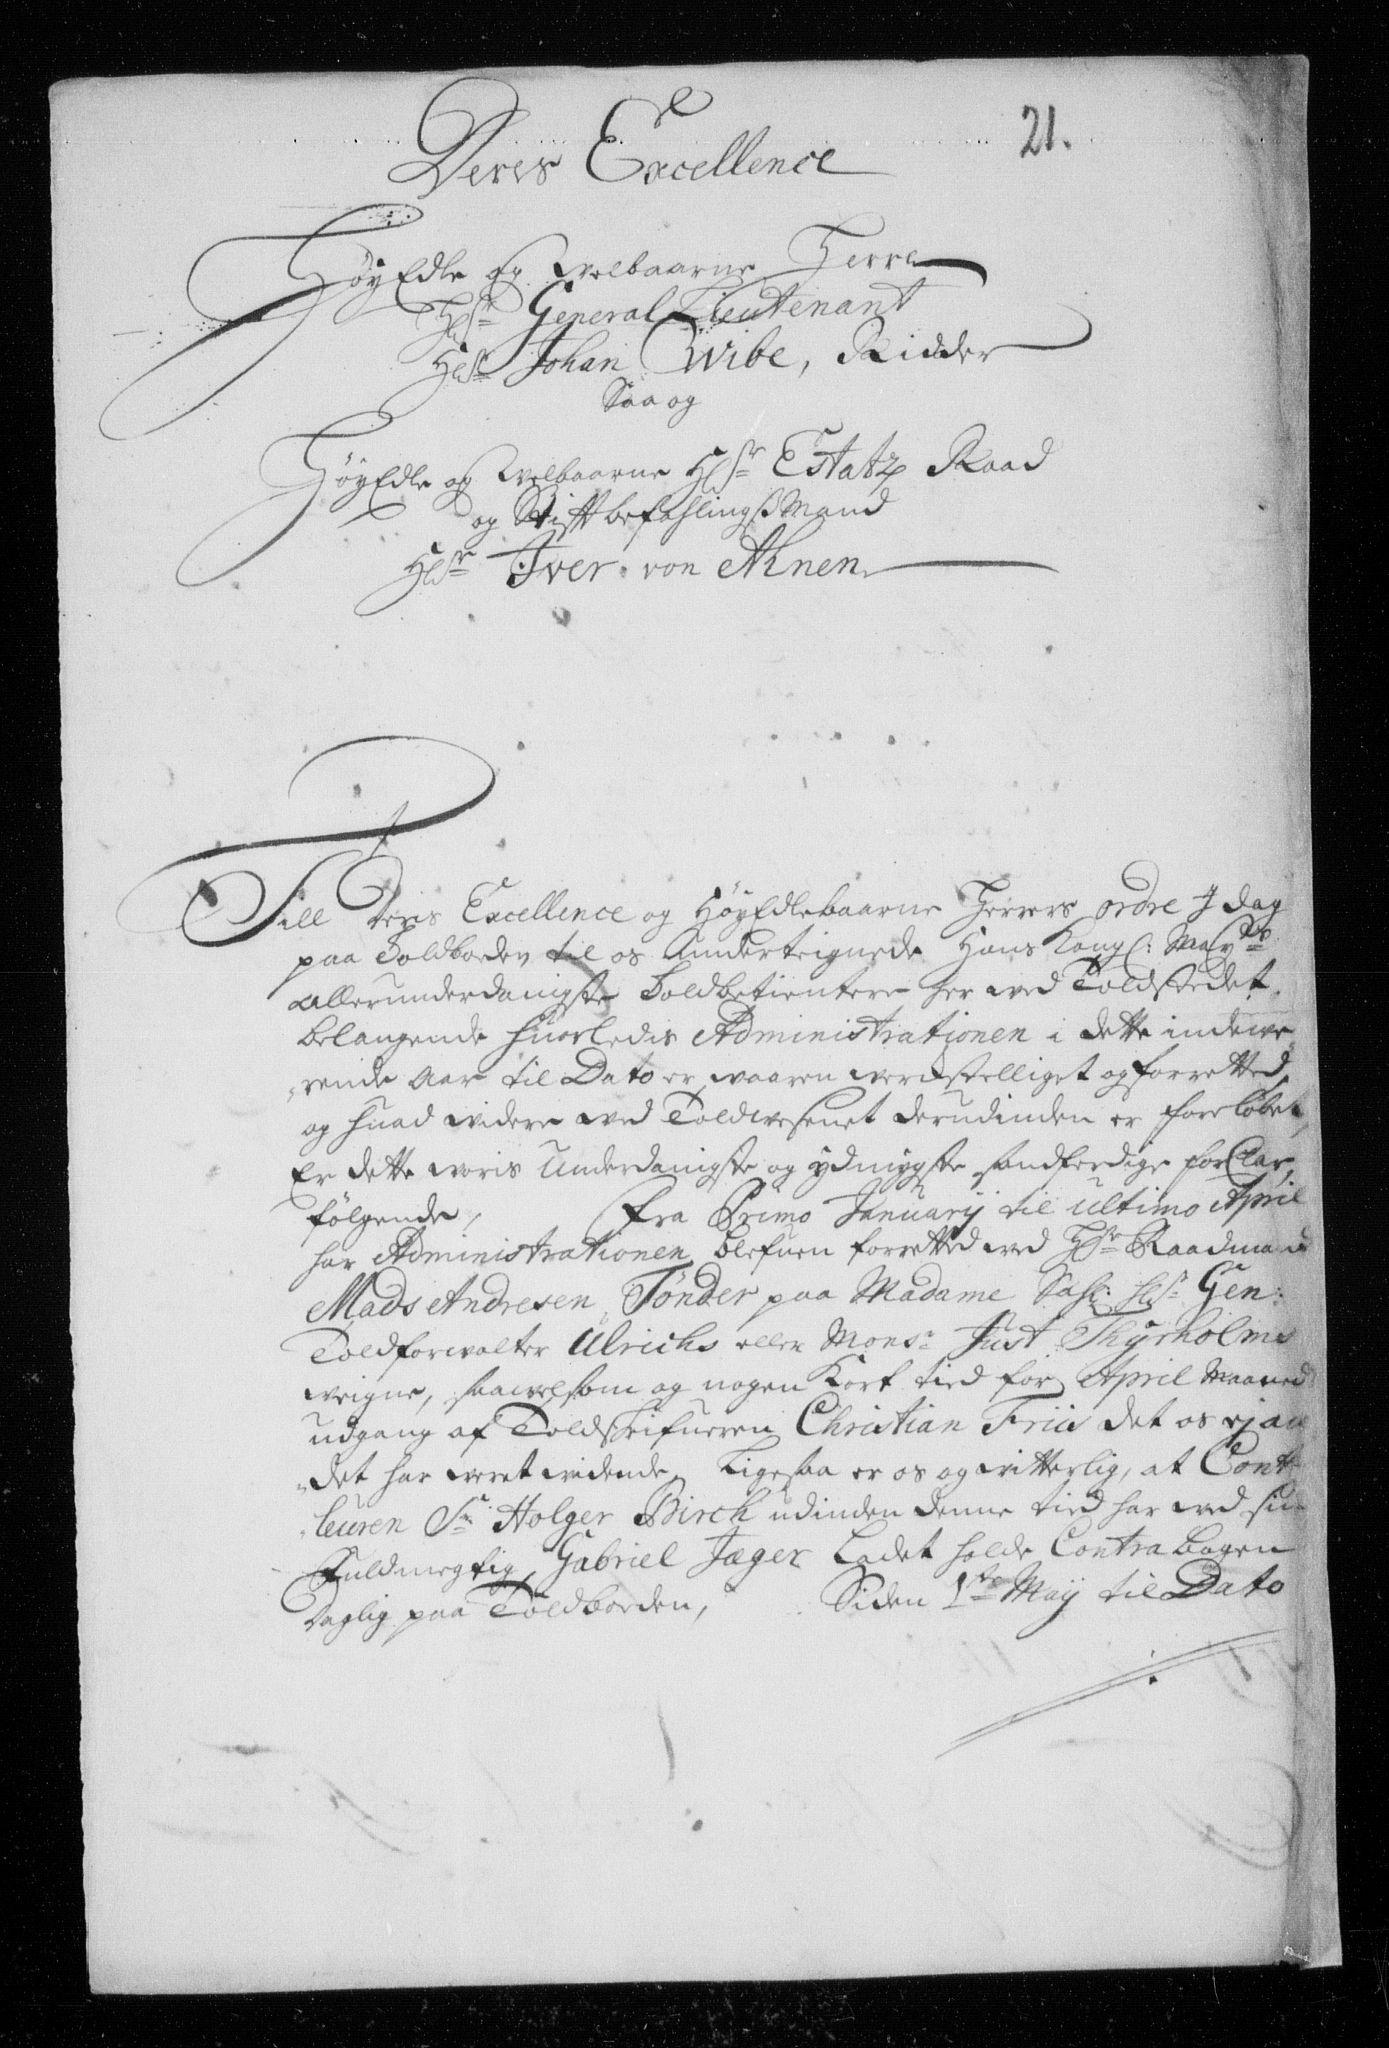 21.
Deris Excellence
HøyEdle og Velbaarne Herre
Hr. General Lieutenant
Hr. Johan Wibe, Ridder
Saa og
HøyEdle og Velbaarne Hr. Estatz Raad
og Stiftbefahlings Mand
Hr. Iver von Ahnen
Till Deris Excellence og HøyEdlebaarne Herrers ordre J dag
paa Toldboden til os Underteignede Hans Kongl: Mayts
allerunderdanigste Toldbetientere her ved Toldstedet,
belangende huorledis Administrationen i dette indewe
rende Aar til Dato er waaren werckstelliget og forretted,
og huad widere ved Toldwesenet derudinden er foreløbet,
Er dette woris Underdanigste og ydmygste sandferdige forClar,
følgende, Fra Primo Januarij til ultimo April
har Administrationen blefuen forretted ved Hr. Raadmand
Mads Andresen Tønder paa Madame Sahl: Hr. Gen:
Toldforvalter Ulrichs eller Monsr. Just Thyrholms
weigne, saawelsom og nogen Kort tied for April Maaned
udgang af Toldskrifueren Christian Friis det os ej an
det har weret widende, Ligesaa er os og witterlig, at Contr
leuren Sr. Holger Birch udinden denne tied har ved sin
Fuldmegtig Gabriel Jæger Ladet holde Contra Bogen
daglig paa Toldboeden, Siden 1te Maij til Dato